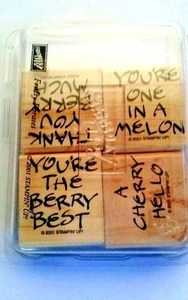 THANK
YOU
BERRY
MUCH
YOU'RE
ONE
IN A
MELON
© 2001 STAMPIN' UP!
YOU'RE
THE
BERRY
BEST
© 2001 STAMPIN' UP!
A
CHERRY
HELLO
© 2001 STAMPIN' UP!